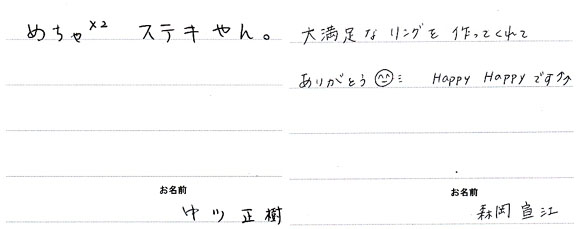 めちゃ×2 ステキやん。
お名前
中川 正樹
大満足な リングを 作ってくれて
ありがとう😊ミ Happy Happyです⤴⤴
お名前
森岡 宣江